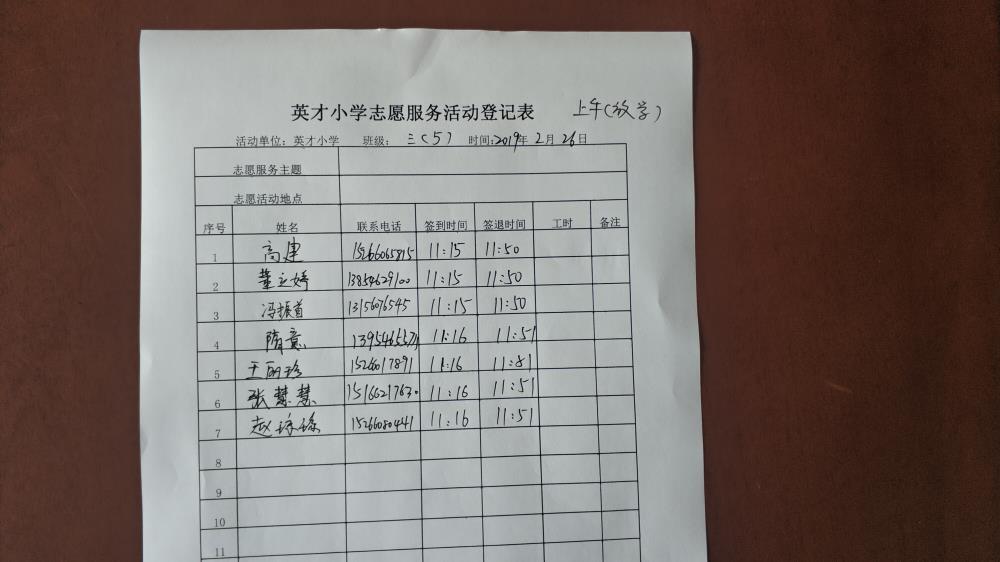 英才小学志愿服务活动登记表 上午(放学)
活动单位：英才小学 班级： 三(5) 时间:2019年 2月 26日
志愿服务主题
志愿活动地点
序号 姓名 联系电话 签到时间 签退时间 工时 备注
1 高建 15266065815 11:15 11:50
2 董立婷 13854629100 11:15 11:50
3 冯振首 1315676545 11:15 11:50
4 隋意 11:16 11:51
5 王丽珍 15266017891 11:16 11:51
6 张慧慧 15166217630 11:16 11:51
7 赵 15266080441 11:16 11:51
8
9
10
11